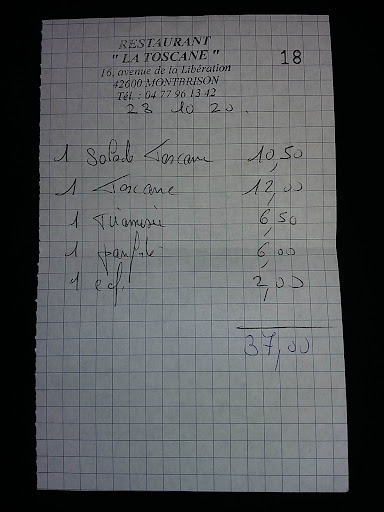 RESTAURANT
" LA TOSCANE "
18
16, avenue de la Libération
42600 MONTBRISON
Tél. : 04 77 96 13 42
23 10 20.
1 Salade Toscane 10,50
1 Toscane 12,00
1 Tiramisu 6,50
1 parfait 6,00
1 caf. 2,00
37,00